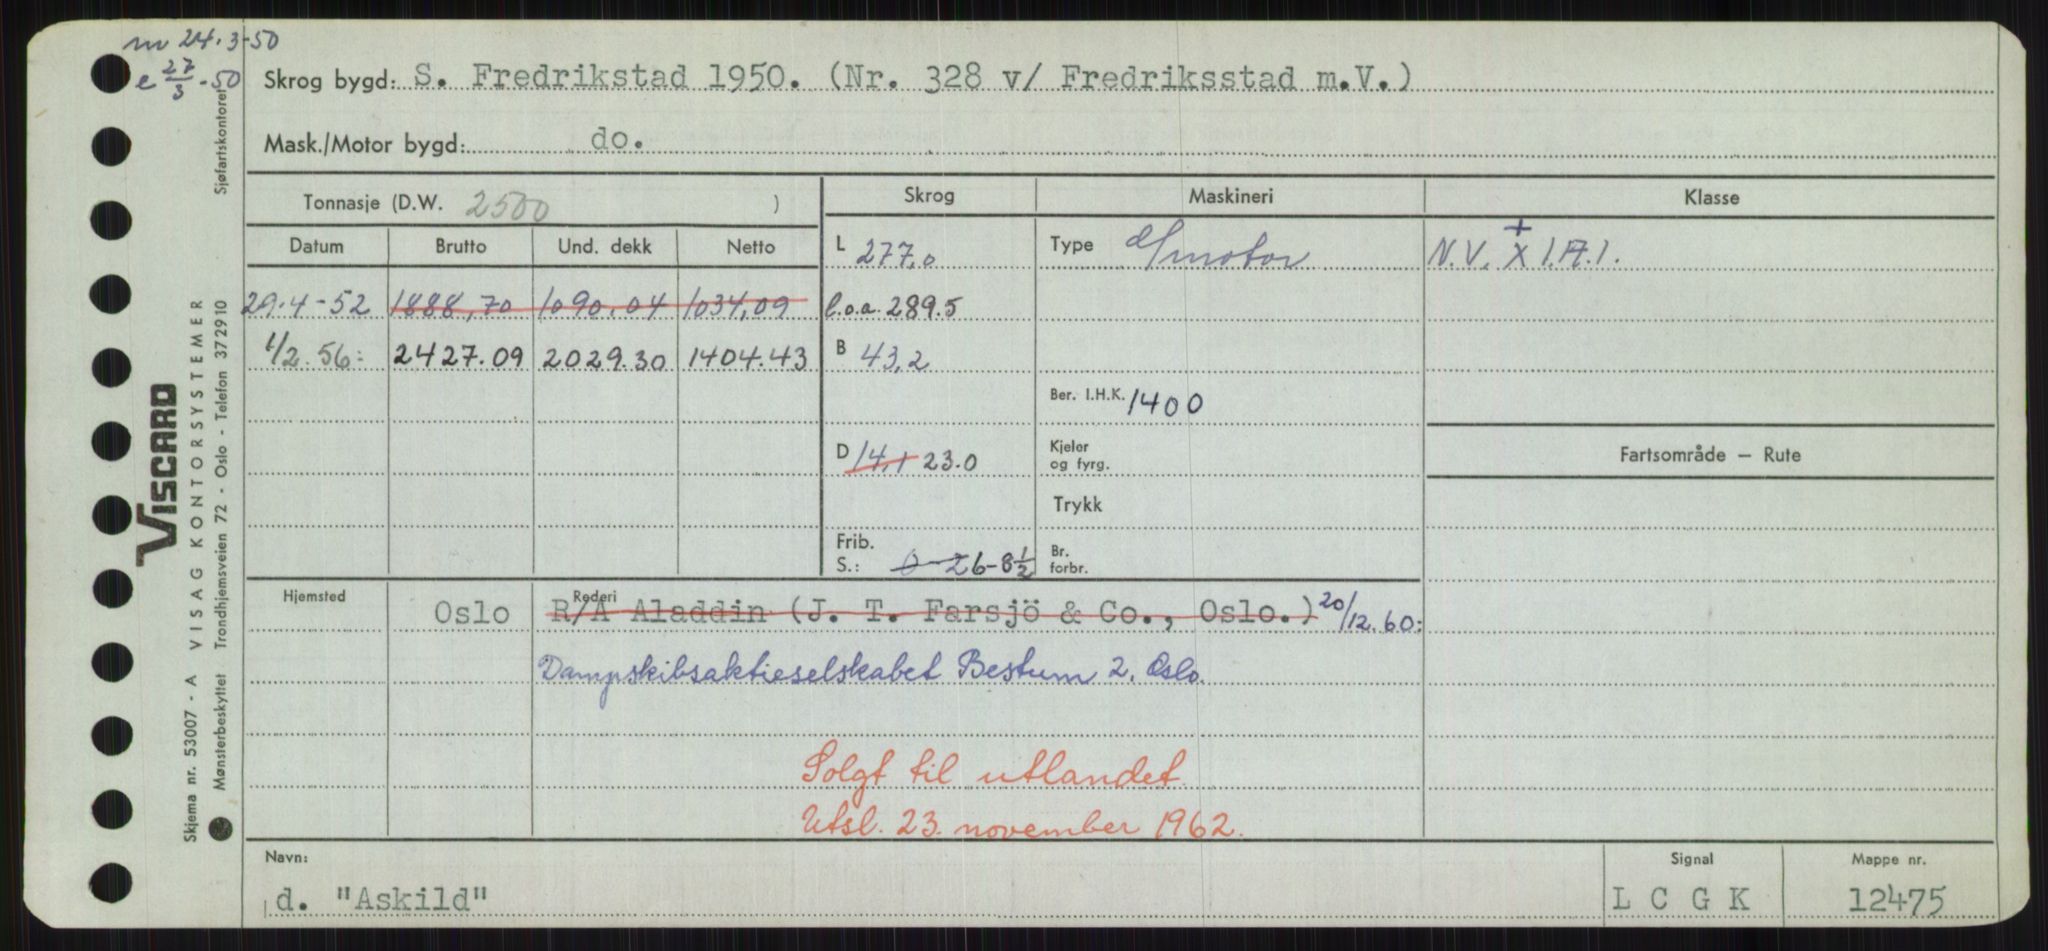 m 24.3-50
e 27/3-50
Skrog bygd: S. Fredrikstad 1950. (Nr. 328 v/ Fredriksstad m.V.)
Mask./Motor bygd: do.
Tonnasje (D.W. 2500 )
Skrog
Maskineri
Klasse
Datum
Brutto
Und. dekk
Netto
L 277,0
Type d/motor
N.V. + X 1.A.1.
29.4-52 1888,70 1090.04 1034,09
l.o.a. 289.5
1/2.56: 2427.09 2029.30 1404.43
B 43,2
Ber. I.H.K. 1400
D 14,1 23.0
Kjeler
og fyrg.
Fartsområde — Rute
Trykk
Frib.
S.: 0-26-8 1/2
Br.
forbr.
Hjemsted
Oslo
Rederi
R/A Aladdin (J. T. Farsjö & Co., Oslo.) 20/12.60:
Dampskibsaktieselskabet Bestum 2, Oslo.
Solgt til utlandet.
Utsl. 23. november 1962.
Navn:
d. "Askild"
Signal
L C G K
Mappe nr.
12475
VISCARD
VISAG KONTORSYSTEMER
Sjøfartskontoret
Skjema nr. 53007 - A
Mønsterbeskyttet Trondhjemsveien 72 - Oslo - Telefon 372910